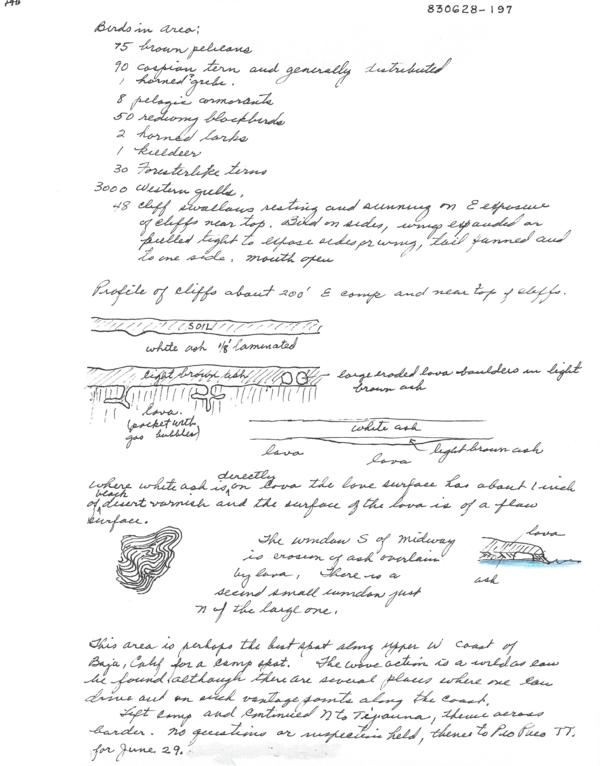 830628-197
Birds in area;
75 brown pelicans
90 caspian tern and generally distributed
1 horned grebe.
8 pelagic cormorants
50 redwing blackbirds
2 horned larks
1 killdeer
30 Foresterlike terns
3000 Western gulls.
48 cliff swallows resting and sunning on E exposure
of cliffs near top. Bird on sides, wings expanded or
pulled tight to expose sides or wing, tail fanned and
to one side. mouth open
Profile of cliffs about 200' E camp and near top of cliffs.
SOIL
white ash 1/8" laminated
light brown ash
large eroded lava boulders in light
brown ash
lava.
(pocket with
gas bubbles)
white ash
light brown ash
lava
lava
directly
where white ash is on lava the lava surface has about 1 inch
black
of desert varnish and the surface of the lava is of a flow
surface.
The window S of midway
is erosion of ash overlain
by lava. There is a
second small window just
N of the large one.
lava
ash
This area is perhaps the best spot along upper W coast of
Baja, Calif for a camp spot. The wave action is a wild as can
be found although there are several places where one can
drive out on such vantage points along the coast.
Left camp and continued N to Tijauna, thence across
border. No questions or inspection held, thence to Pio Pico TT.
for June 29.